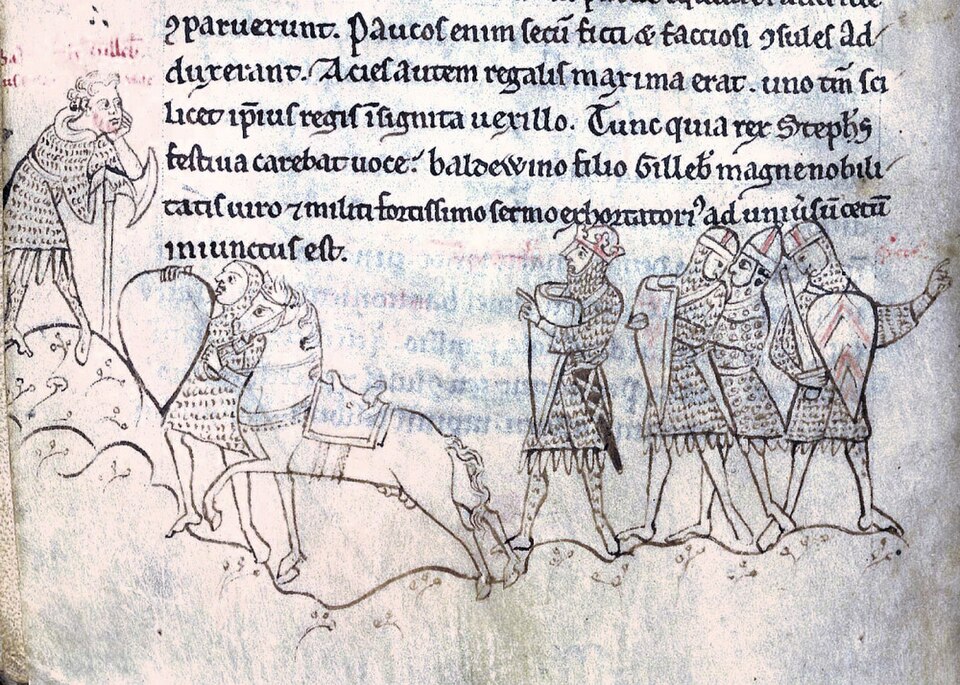 ꝯparuerunt. Paucos enim secū ficti & facciosi ꝯsules ad/
duxerant. Acies autem regalis maxima erat. uno tm̄ sci
licet ip̄ius regis īsignita uexillo. Tunc quia rex Steph̄s
festiua carebat uoce: baldewino filio Gilleb̄ magne nobili/
tatis uiro ⁊ militi fortissimo sermo exhortatoriꝰ ad uniũsū cetū
iniunctus est.